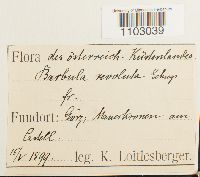 1103039
Flora des österreich. Küstenlandes.
Barbula revoluta Schrp
fr.
Fundort: Görz, Mauerkronen am
Castell.
15/V 1899. leg. K. Loitlesberger.